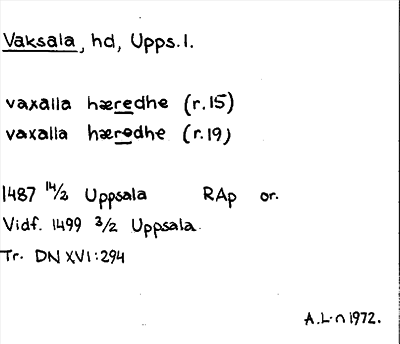 Vaksala, hd, Upps.l.
vaxalla hæredhe (r.15)
vaxalla hærødhe (r.19)
1487 14/2 Uppsala RAp or.
Vidf. 1499 3/2 Uppsala.
Tr. DN XVI:294
A.L-n 1972.